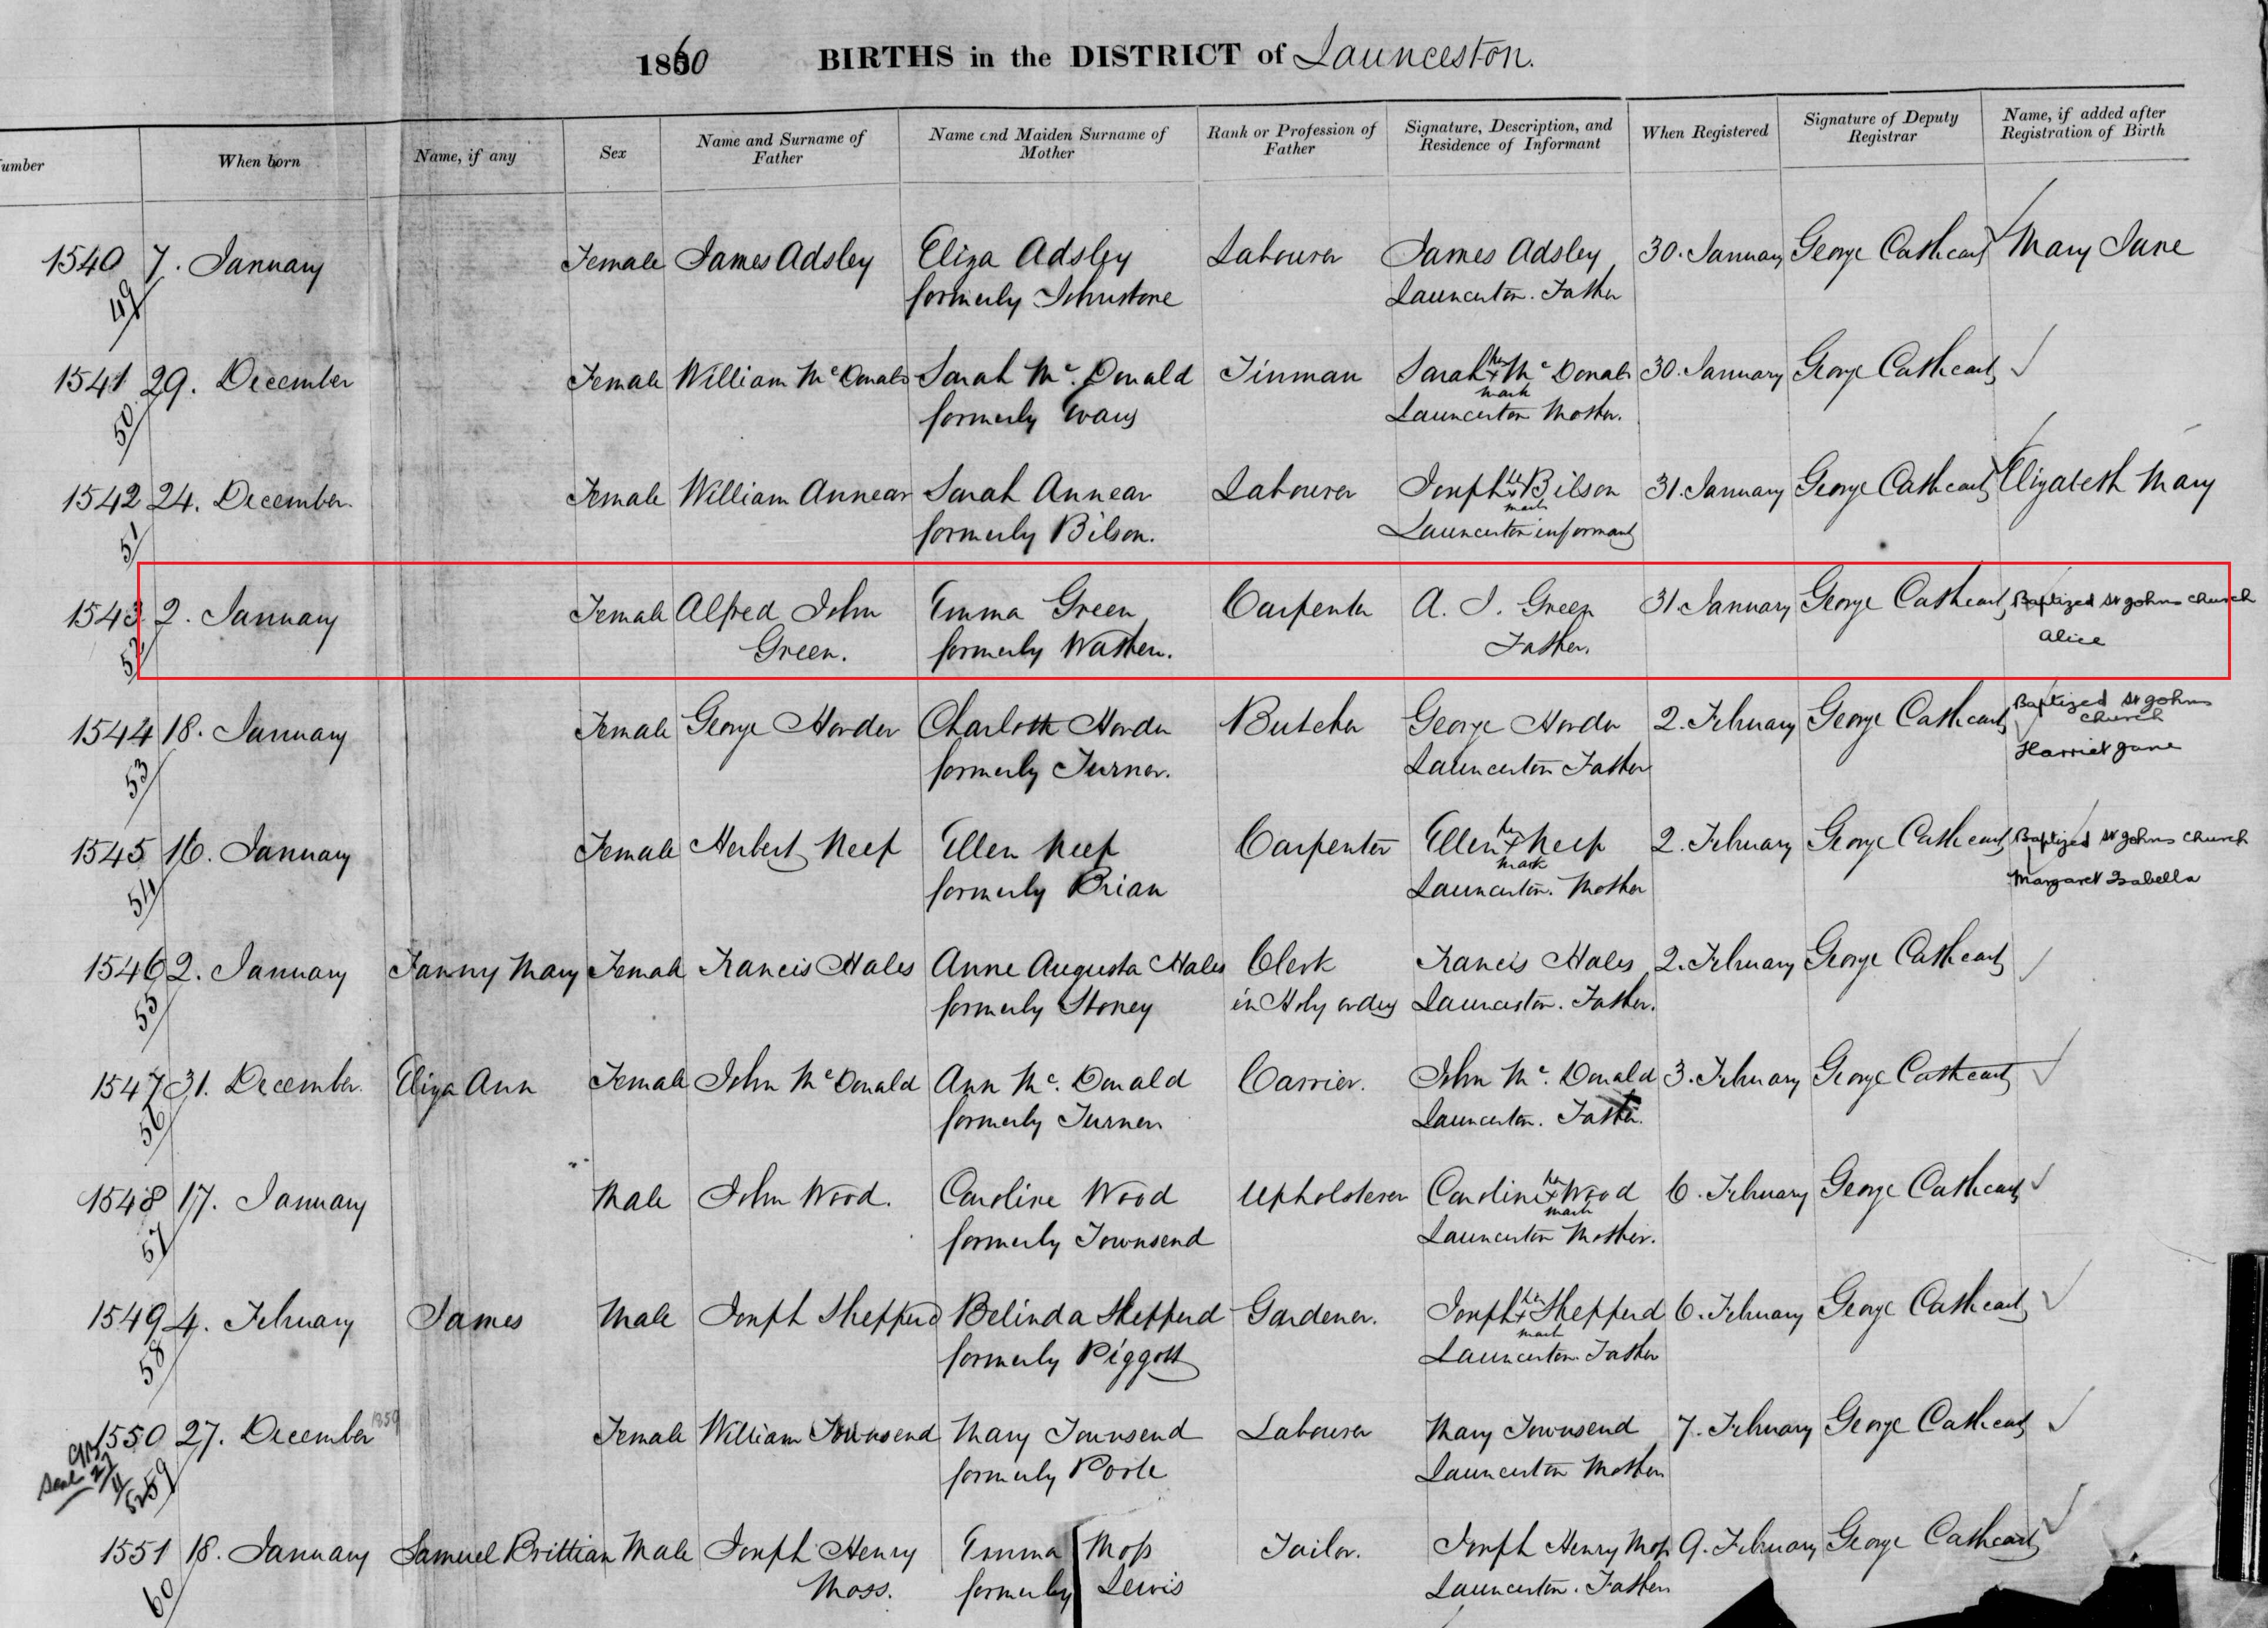 1860 BIRTHS in the DISTRICT of Launceston.
umber When born Name, if any Sex Name and Surname of Father Name and Maiden Surname of Mother Rank or Profession of Father Signature, Description, and Residence of Informant When Registered Signature of Deputy Registrar Name, if added after Registration of Birth
1540 7. January Female James Adsley Eliza Adsley Labourer James Adsley 30. January George Cathcart Mary Jane
49 formerly Johnstone Launceston. Father
1541 29. December Female William McDonald Sarah Mc. Donald Tinman Sarah her x Mc Donald 30. January George Cathcart
mark
50 formerly Launceston Mother.
1542 24. December. Female William Annear Sarah Annear Labourer Joseph his x Bilson 31. January George Cathcart Elizabeth Mary
mark
51 formerly Bilson. Launceston informant
1543 2. January Female Alfred John Emma Green Carpenter A. J. Green 31 January George Cathcart Baptized St Johns Church
52 Green. formerly Wathen. Father. Alice
1544 18. January Female George Horder Charlotte Horder Butcher George Horder 2. February George Cathcart Baptized St Johns Church
53 formerly Turner. Launceston Father Harriet Jane
1545 16. January Female Herbert Neep Ellen Neep Carpenter Ellen her x Neep 2. February George Cathcart Baptized St Johns Church
mark
54 formerly Brian Launceston. Mother Margaret Isabella
1546 2. January Fanny Mary Female Francis Hales Anne Augusta Hales Clerk Francis Hales 2. February George Cathcart
55 formerly Stoney in Holy orders Launceston. Father.
1547 31. December. Eliza Ann Female John McDonald Ann Mc. Donald Carrier. John Mc. Donald 3. February George Cathcart
56 formerly Turner Launceston. Father.
1548 17. January Male John Wood. Caroline Wood Upholsterer Caroline her x Wood 6. February George Cathcart
mark
57 formerly Townsend Launceston Mother.
1549 4. February James Male Joseph Shepperd Belinda Shepperd Gardener. Joseph his x Shepperd 6. February George Cathcart
mark
58 formerly Piggott Launceston. Father
1550 27. December 1859 Female William Townsend Mary Townsend Labourer Mary Townsend 7. February George Cathcart
59 formerly Poole Launceston Mother
1551 18. January Samuel Brittian Male Joseph Henry Emma Moss Tailor. Joseph Henry Moss 9. February George Cathcart
60 Moss. formerly Lewis Launceston. Father